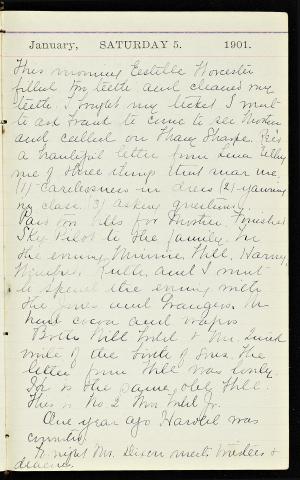 January, SATURDAY 5. 1901.
This morning Estelle Worcester
filled my teeth and cleaned my
teeth. I bought my ticket I went
to ask Frank to come to see Mother
and called on Mary Sharpe. Rec'd
a beautiful letter from telling
me of three things that mar me,
(1) Carelessness in dress (2) yawning
in class (3) asking questions.
Paid for for Mother. Finished
Sky Pilot to the family. In
the evening Minnie Hill, Harry
Ruth and I went
to spend the evening with
the Jones and Grangers. We
had cocoa and wafers
Both Will Weld & Mr.
of the Jones. The
letter from Will was lovely
He is the same old Will.
This is No. 2 Wm Weld Jr.
One year ago Harold was
To night Mr. Dixon meets trustees &
deacons.